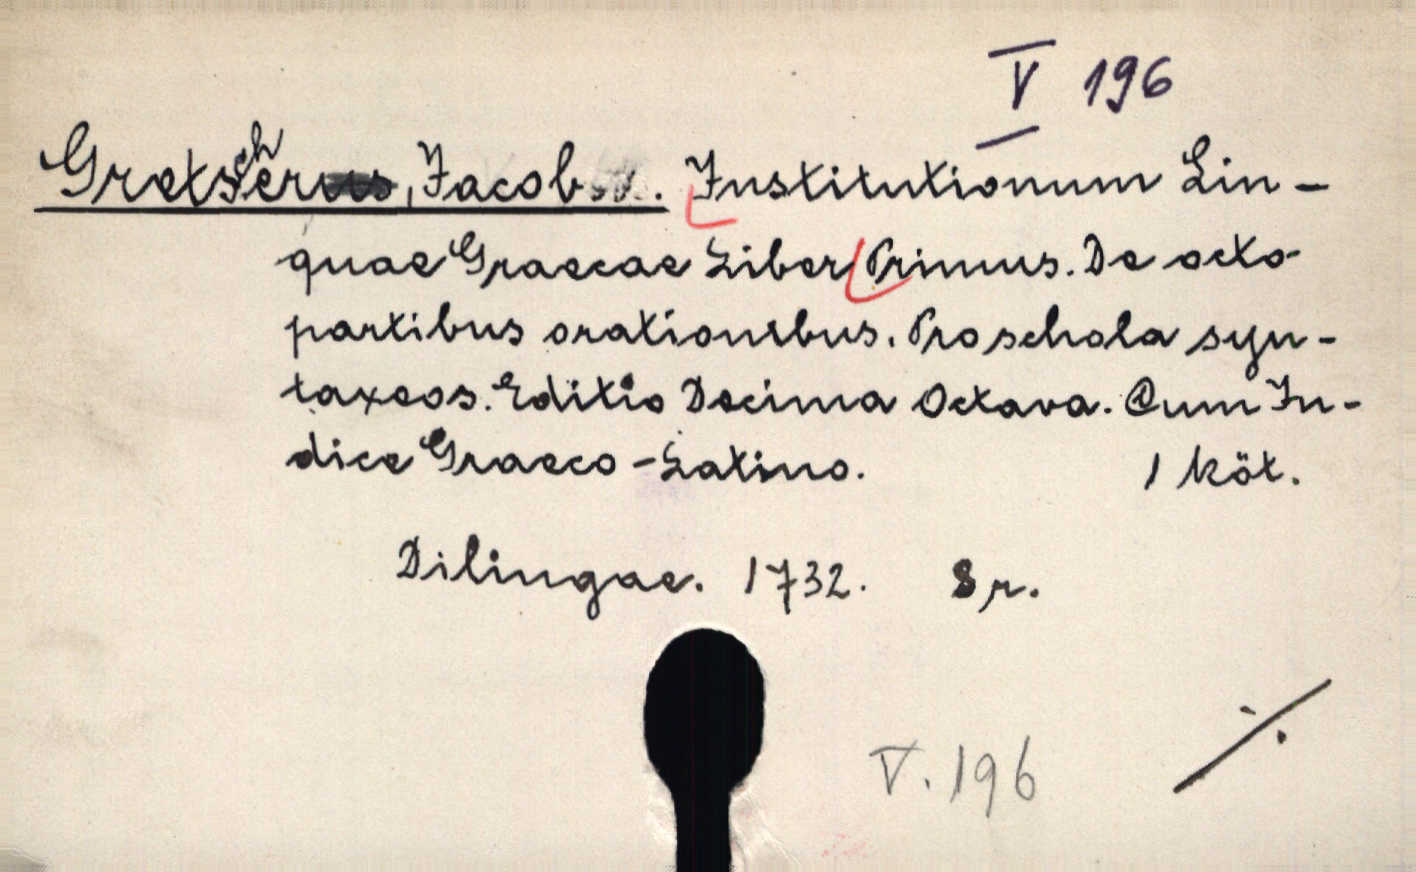 V 196
Gretscher, Jacob. Institutionum Lin-
quae Graecae Liber Primus. De octo
partibus orationibus. Pro schola syn-
taxeos. Editio Decima Octava. Cum In-
dice Graeco-Latino. 1 köt.
Dilingae. 1732. 8 r.
V. 196 ·/·